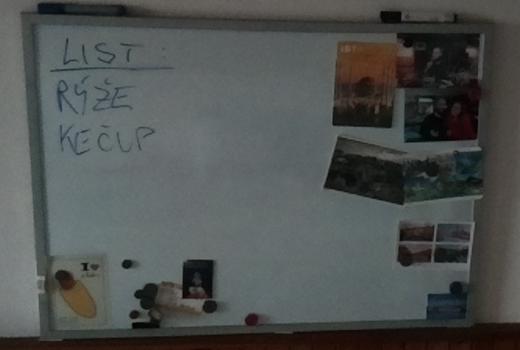 LIST:
RÝŽE
KEČUP
I ♥